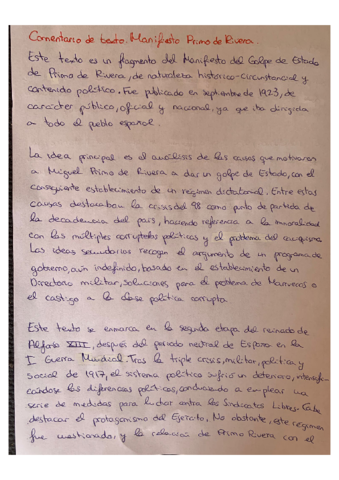 Comentario de texto. Manifiesto Primo de Rivera.
Este texto es un fragmento del Manifiesto del Golpe de Estado
de Primo de Rivera, de naturaleza histórico-circunstancial y
contenido político. Fue publicado en septiembre de 1923, de
carácter pública, oficial y nacional, ya que iba dirigida
a todo el pueblo español.
La idea principal es el análisis de las causas que motivaron
a Miguel Primo de Rivera a dar un golpe de Estado, con el
consiguiente establecimiento de un régimen dictatorial. Entre estas
causas destacaban la crisis del 98 como punto de partida de
la decadencia del país, haciendo referencia a la inmoralidad
con los múltiples corruptelas políticas y el problema del caciquismo.
Las ideas secundarias recogen el argumento de un programa de
gobierno, aún indefinido, basado en el establecimiento de un
Directorio militar, soluciones, para el problema de Marruecos o
el castigo a la clase política corrupta.
Este texto se enmarca en la segunda etapa del reinado de
Alfonso XIII, después del periodo neutral de España en la
I Guerra Mundial. Tras la triple crisis, militar, política y
social de 1917, el sistema político sufrió un deterioro, intensifi-
cándose las diferencias políticas, conduciendo a emplear una
serie de medidas para luchar contra los Sindicatos Libres. Cabe
destacar el protagonismo del Ejército. No obstante, este régimen
fue cuestionado, y la relación de Primo Rivera con el